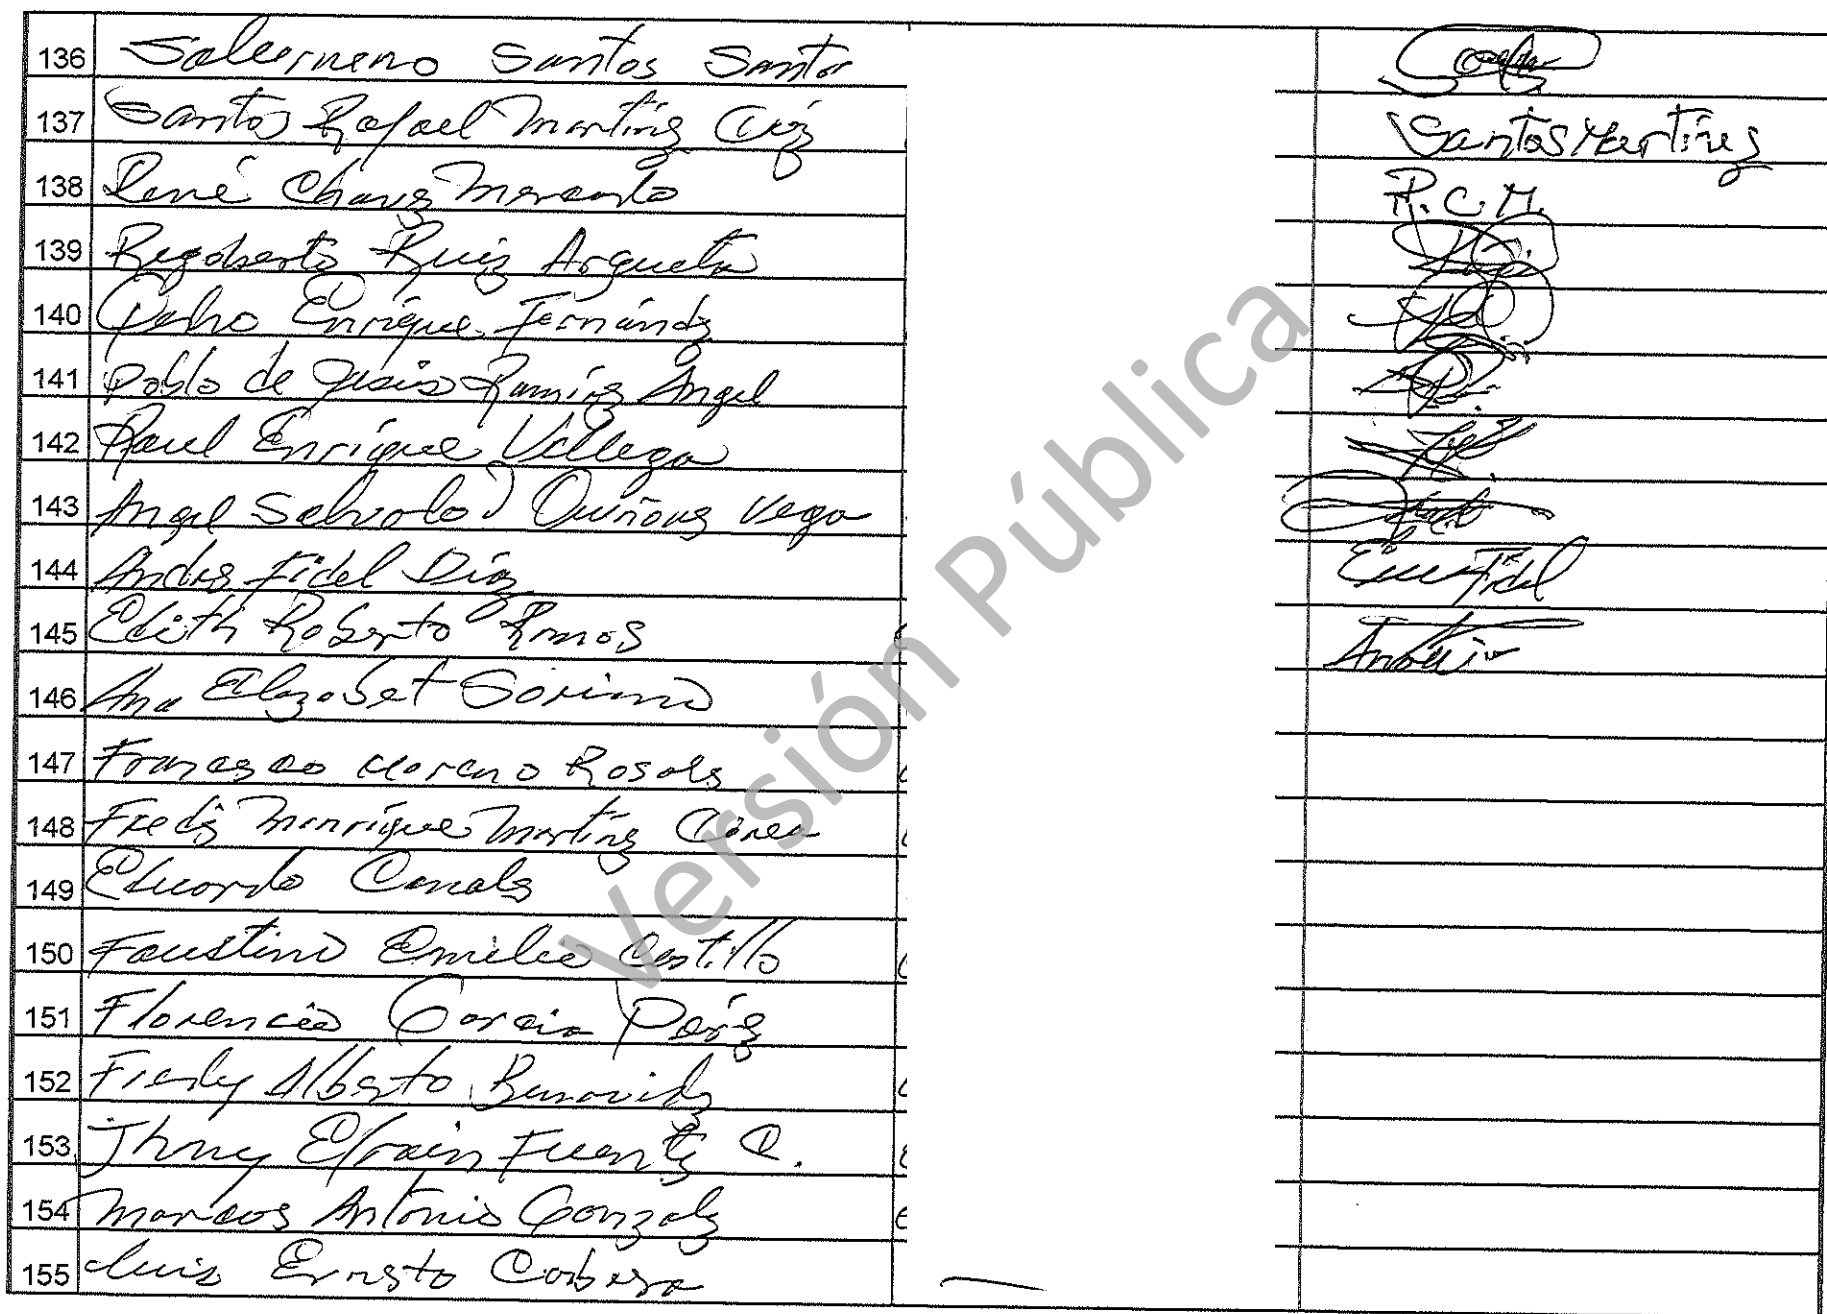 136 Santos Santos
137 Santos Rafael Martínez Cruz Santos Martínez
138 René Chavez Mercado R.C.M.
139 Rigoberto Ruiz Argueta
140 Pedro Enrique Fernández
141 Pablo de Jesús Ramírez Angel
142 Raul Enrique Villega
143 Angel Salvador Quiñonez Vega
144 Andres Fidel Díaz
145 Edith Roberto Ramos
146 Ana Elizabet Soriano
147 Francisco Moreno Rosales
148 Fredy Manrique Martínez
149 Eduardo Canales
150 Faustino Emilio Castillo
151 Florencio Garcia Peréz
152 Fredy Alberto Benavidez
153 Jhnny Efrain Fuentes C.
154 Marcos Antonio Gonzalez
155 Luis Ernesto
Versión Pública